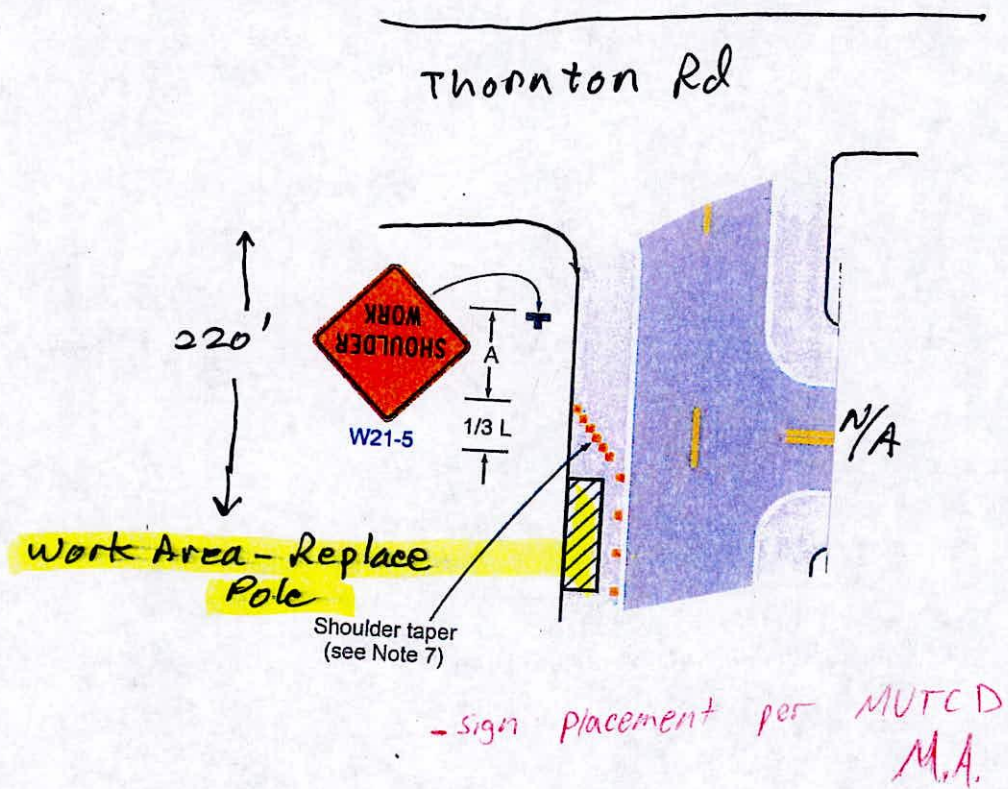 Thornton Rd
220'
SHOULDER
WORK
W21-5
A
1/3 L
N/A
Work Area - Replace
Pole
Shoulder taper
(see Note 7)
- sign placement per MUTCD
M.A.